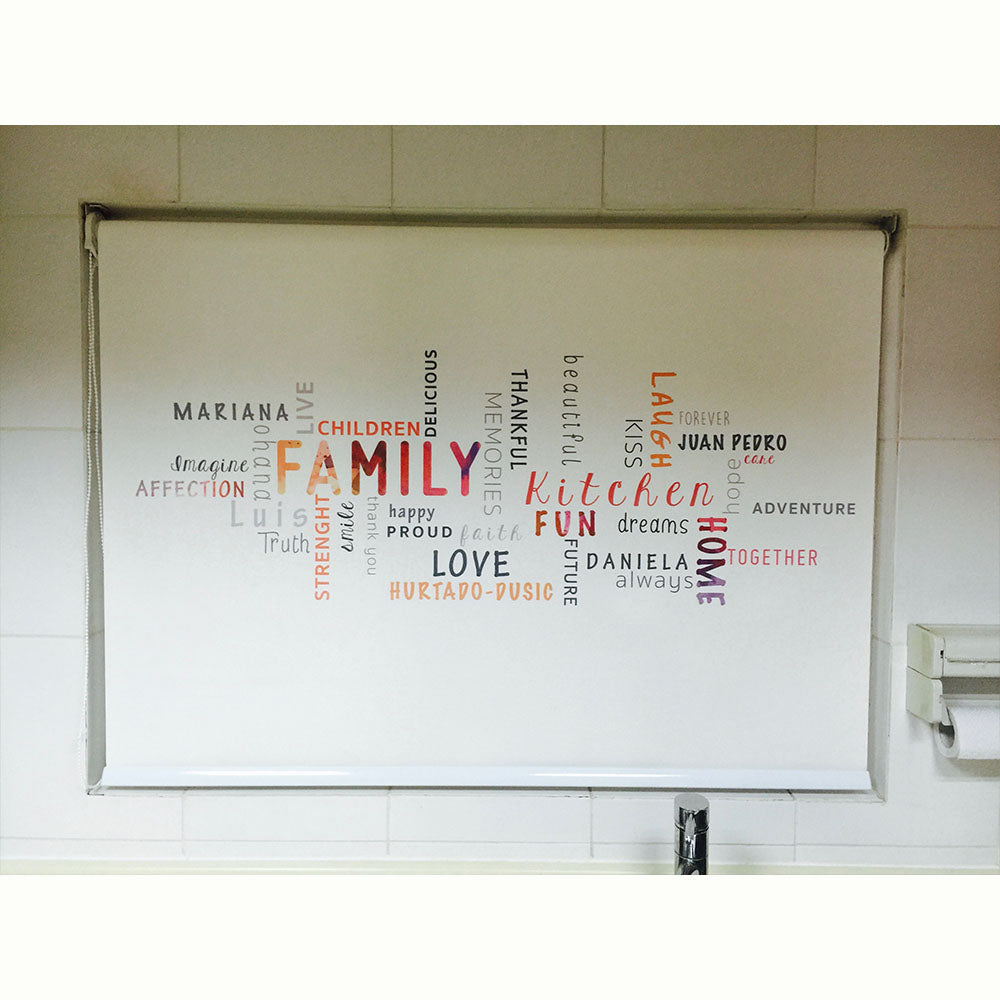 MARIANA
LIVE
ohana
CHILDREN
DELICIOUS
Imagine
AFFECTION
FAMILY
Luis
Truth
STRENGHT
smile
thank you
happy
PROUD
faith
LOVE
HURTADO-DUSIC
MEMORIES
THANKFUL
beautiful
Kitchen
FUN
FUTURE
KISS
LAUGH
FOREVER
JUAN PEDRO
care
hope
ADVENTURE
dreams
DANIELA
always
HOME
TOGETHER